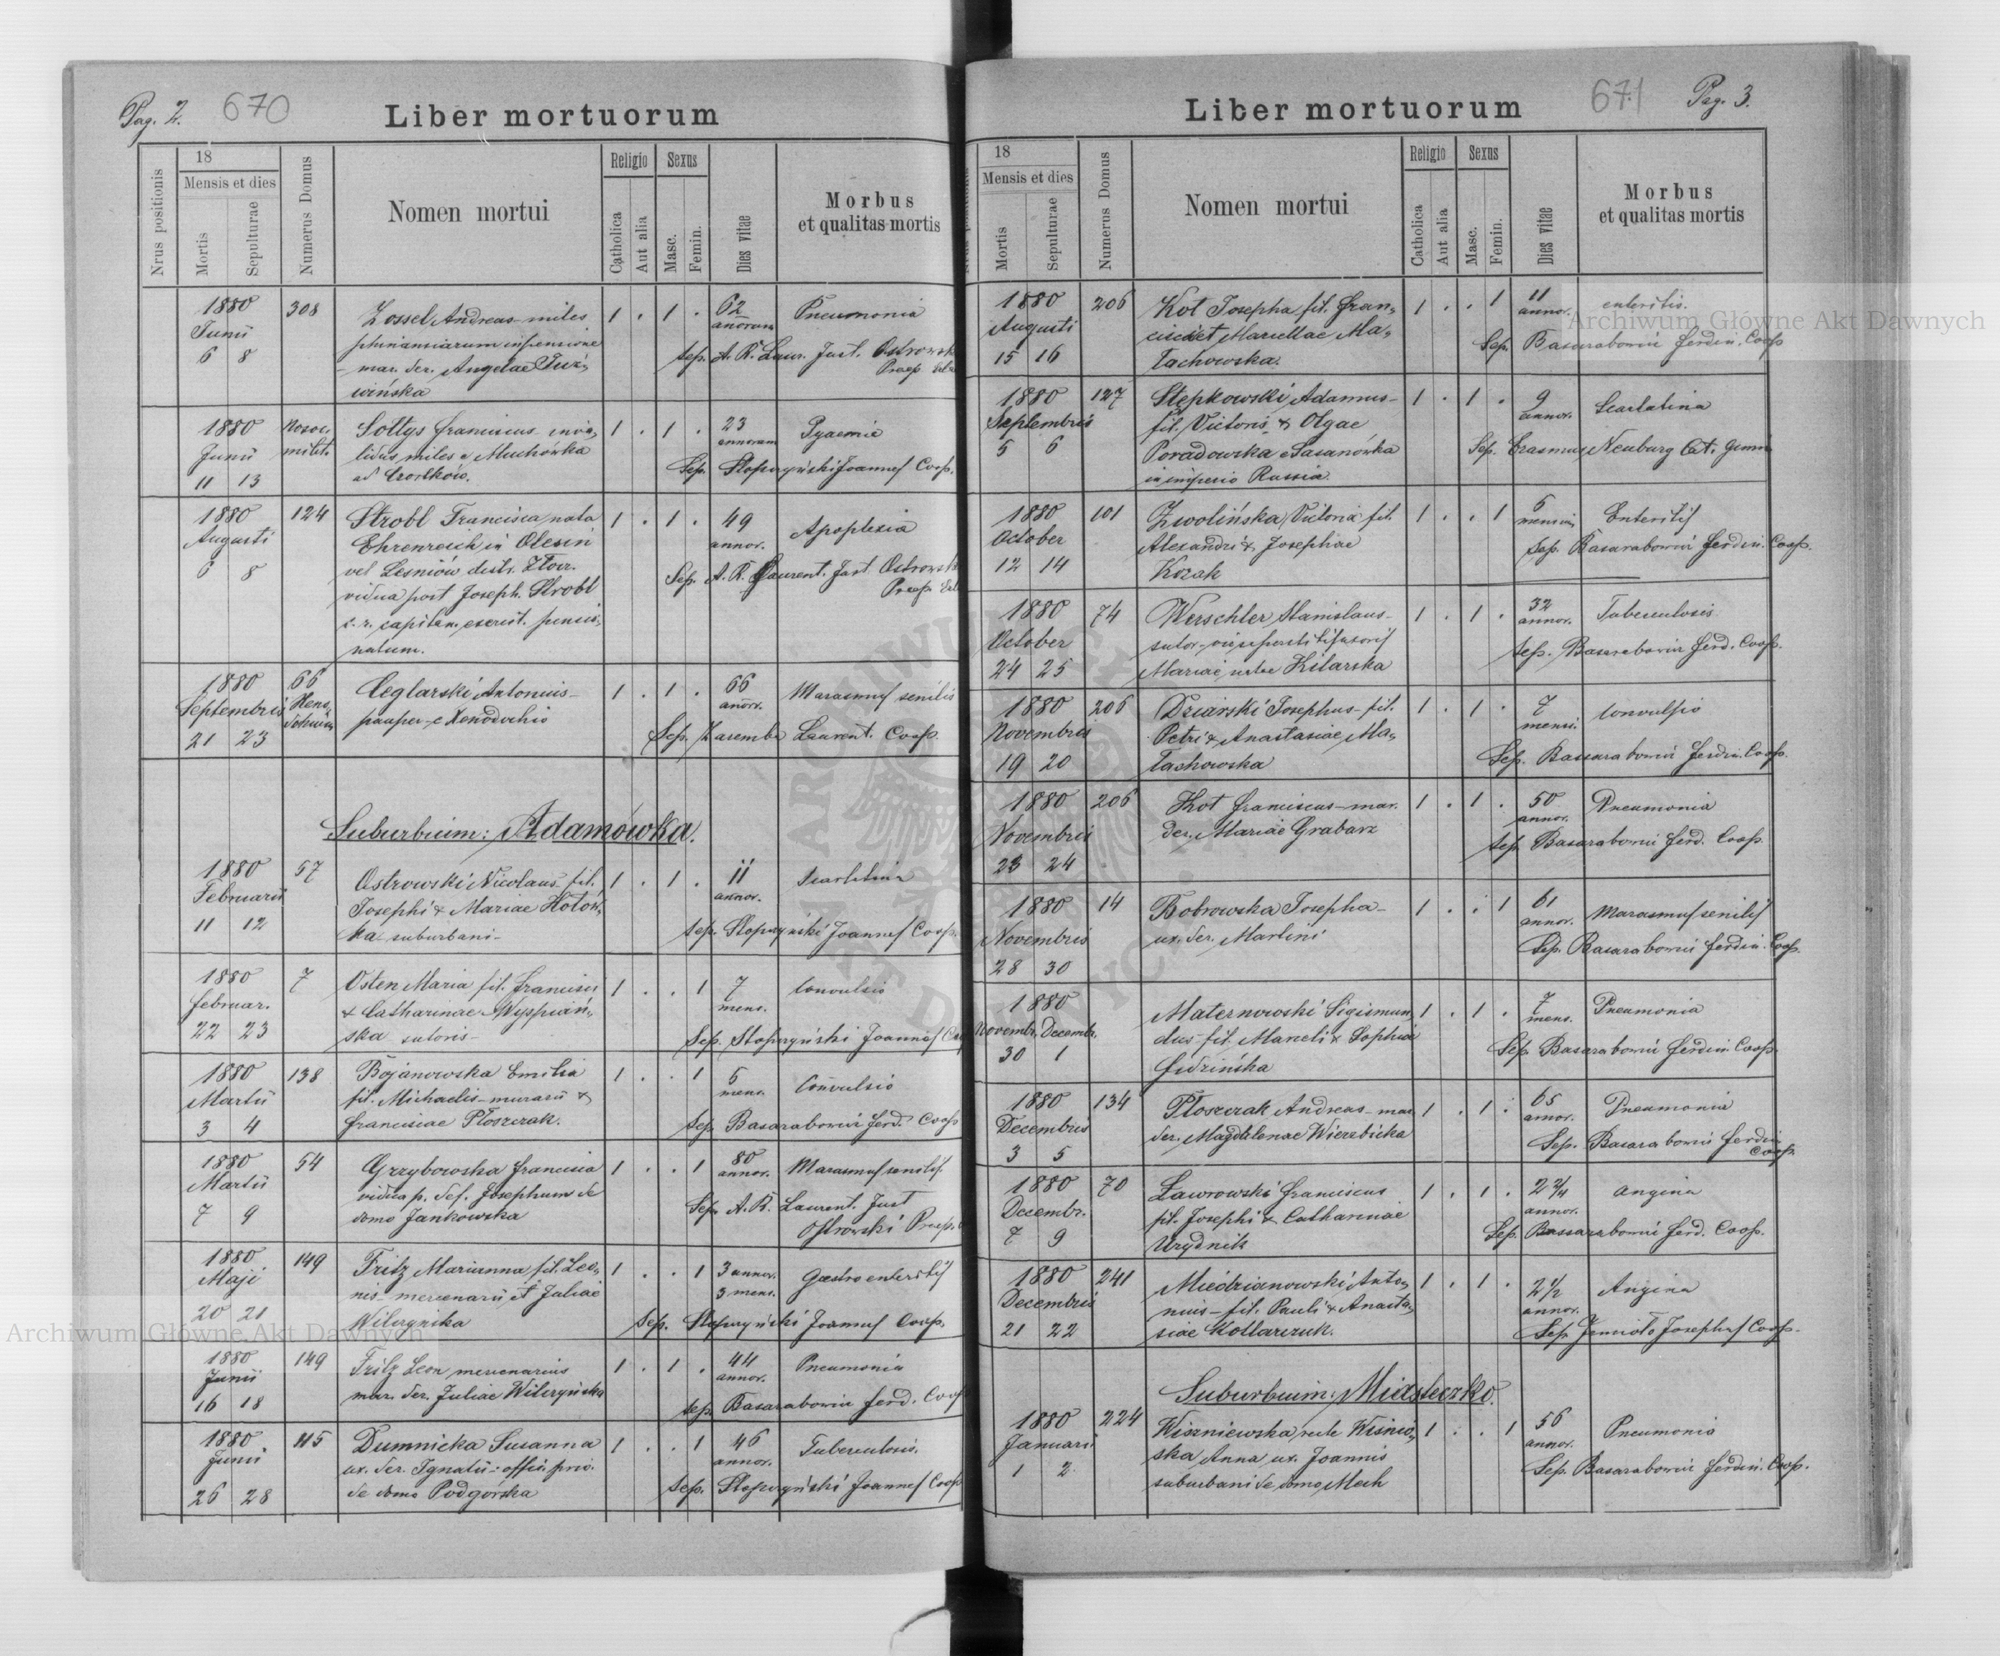 Pag. 2.
670
Liber mortuorum
Nrus positionis
18
Mensis et dies
Mortis
Sepulturae
Numerus Domus
Nomen mortui
Religio
Catholica
Aut alia
Sexus
Masc.
Femin.
Dies vitae
Morbus
et qualitas mortis
1880 308 Zossel Andreas miles 1 . 1 . 62 Pneumonia
Junii anorum
6 8 mar. der. Angelae
wińska
Sep. A. R. Laur. Just. Ostrowski
1880 Sołtys Franciscus inva, 1 . 1 . 23 Pyaemia
Junii milit. lidus miles e Muchówka annorum
11 13 ad Czortków. Sep. Stopczyński Joannes Coop.
1880 124 Strobl Francisca nata 1 . 1 . 49 Apoplexia
Augusti Ehrenresch in Olesin annor.
6 8 vel Lesniow distr. Złocz.
vidua post Joseph. Strobl Sep. A. R. Laurent. Just Ostrowski
c. r. capitan. exercit. pensio,
natum.
1880 66 Ceglarski Antonius 1 . 1 . 66 Marasmus senilis
Septembris anor.
21 23 pauper e Xenodochio Sep. Zaremba Laurent. Coop
Suburbium: Adamówka.
1880 57 Ostrowski Nicolaus fil. 1 . 1 . 11 Scarlatina
Februarii Josephi & Mariae Hołow, annor.
11 12 ka suburbani Sep. Stopczyński Joannes Coop.
1880 7 Osten Maria fil. Francisci 1 . . 1 7 Convulsio
Februar. & Catharinae Wyspiań, mens.
22 23 ska sutoris Sep. Stopczyński Joannes
1880 138 Bojanowska Emilia 1 . . 1 5 Convulsio
Martii fil. Michaelis murarii & mens.
3 4 Franciscae Płoszczak. Sep. Basarabowicz Ferd. Coop
1880 54 Grzybowska Francisca 1 . . 1 80 Marasmus senilis
Martii vidua p. def. Josephum de annor.
7 9 domo Jankowska Sep. A. R. Laurent. Just
Ostrowski
1880 149 Fritz Marianna fil. Leo, 1 . . 1 3 annor. Gastroenteritis
Maji nis mercenarii et Juliae 3 mens.
20 21 Sep. Stopczyński Joannes Coop.
1880 149 Fritz Leon mercenarius 1 . 1 . 44 Pneumonia
Junii mar. der. Juliae annor.
16 18 Sep. Basarabowicz Ferd. Coop
1880 115 Dumnicka Susanna 1 . . 1 46 Tuberculosis
Junii ux. der. Ignatii offic. priv. annor.
26 28 de domo Podgórska Sep. Stopczyński Joannes Coop
671
Pag. 3.
Liber mortuorum
18
Mensis et dies
Mortis
Sepulturae
Numerus Domus
Nomen mortui
Religio
Catholica
Aut alia
Sexus
Masc.
Femin.
Dies vitae
Morbus
et qualitas mortis
1880 206 Kot Josepha fil. Fran, 1 . . 1 11 enteritis
Augusti cisci et Marcellae Ma, annor.
15 16 łachowska. Sep. Basarabowicz Ferdin. Coop
1880 127 Stępkowski Adamus 1 . 1 . 9 Scarlatina
Septembris fil. Victoris & Olgae annor.
5 6 Poradowska Sasanówka Sep. Erasmus Neuburg Cat. Gimn
in imperio Russia
1880 101 Zwolińska Victoria fil. 1 . . 1 6 Enteritis
October Alexandri & Josephae mensium
12 14 Kozak Sep. Basarabowicz Ferdin. Coop.
1880 74 Werschler Stanislaus 1 . 1 . 32 Tuberculosis
October annor.
24 25 Mariae Kitarska Sep. Basarabowicz Ferd. Coop.
1880 206 Dziarski Josephus fil. 1 . 1 . 7 Convulsio
Novembris Petri & Anastasiae Ma, mensi.
19 20 łachowska Sep. Bassarabowicz Ferdin. Coop.
1880 206 Kot Franciscus mar. 1 . 1 . 50 Pneumonia
Novembris der. Mariae Grabarz annor.
23 24 Sep. Basarabowicz Ferd. Coop.
1880 14 Bobrowska Josepha 1 . . 1 61 Marasmus senilis
Novembris ux. der. Martini annor.
28 30 Sep. Basarabowicz Ferdin. Coop.
1880 Maternowski Sigismun 1 . 1 . 7 Pneumonia
Novembr. Decembr. dus fil. Marceli & Sophiae mens.
30 1 Fidzińska Sep. Basarabowicz Ferdin. Coop.
1880 134 Płoszczak Andreas mar 1 . 1 . 65 Pneumonia
Decembris der. Magdalenae Wierzbicka annor.
3 5 Sep. Basarabowicz Ferdin
Coop.
1880 70 Ławrowski Franciscus 1 . 1 . 2 3/4 Angina
Decembr. fil. Josephi & Catharinae annor.
7 9 Urydnik Sep. Bassarabowicz Ferd. Coop.
1880 241 Miedzianowski Anto, 1 . 1 . 2 1/2 Angina
Decembris nius fil. Pauli & Anasta, annor.
21 22 siae Kotlarczuk. Sep. Josephus Coop.
Suburbium: Miasteczko.
1880 224 Wiszniewska recte Wisnio, 1 . . 1 56 Pneumonia
Januarii ska Anna ux. Joannis annor.
1 2 suburbani de domo Mech Sep. Basarabowicz Ferdin. Coop.
Archiwum Główne Akt Dawnych
Archiwum Główne Akt Dawnych